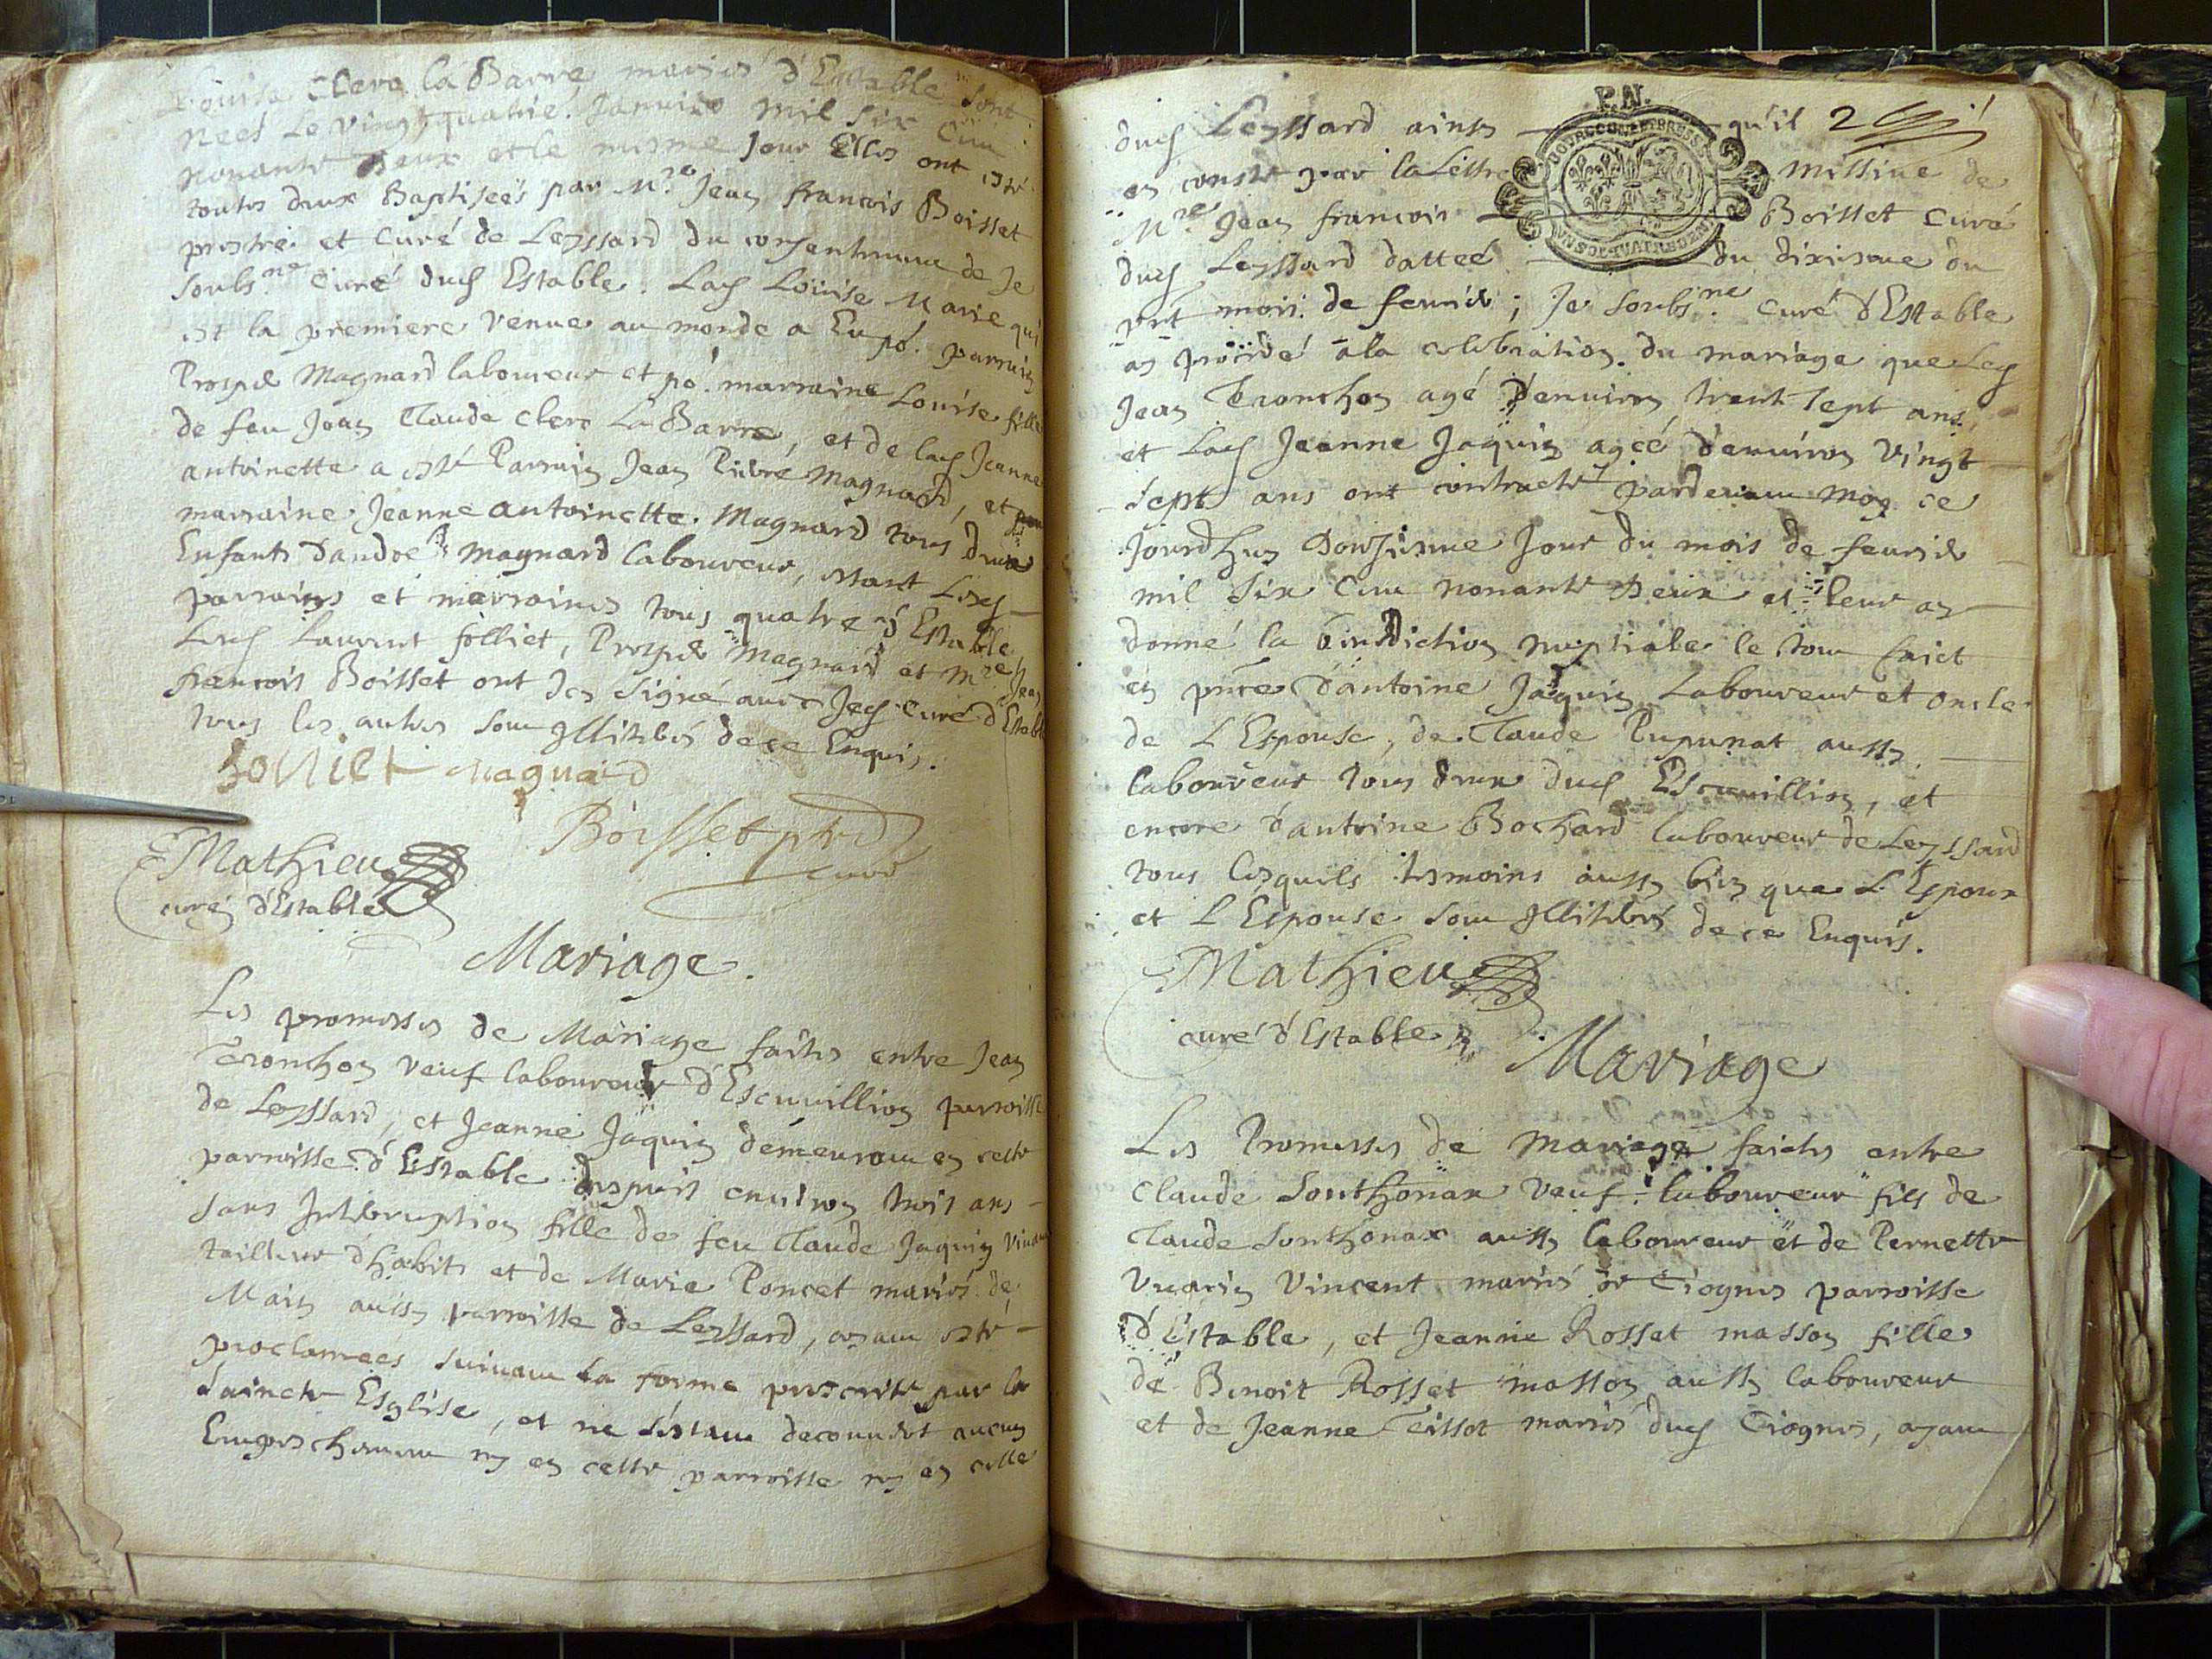 Louise Clerc la Barre mariés d'Estable sont
nées Le vingtquatrie. Januier mil six Cent
nonante Deux et le mesme Jour Elles ont esté
toutes deux Baptisées par Mre. Jean francois Boisset
prestre et Curé de Leyssard du consentement de Je
soubs.né Curé dud Estable. Lad Loüise Marie qui
est la premiere venue au monde a Eu po. parrain
Prosper Magnard laboureur et po. marraine Louise fille
de feu Jean Claude Clerc La Barre, et de lad Jeanne
antoinette a esté Parrain Jean Pierre Magnard, et
marraine Jeanne antoinette Magnard tous deux
Enfants d'andre Magnard laboureur, estant Lesd
parrains et marraines tous quatre d'Estable
Lesd Laurent folliet, Prosper Magnard et Mre Jean
francois Boisset ont Icy signé auec Jed Curé d'Estable
tous les autres sont Illiterés de ce Enquis.
folliet magnard
Boisset ptre
curé
Mathieu
curé d'Estable
Mariage.
Les promesses de Mariage faites entre Jean
Tronchon veuf laboureur d'Escuuillion parroisse
de Leyssard, et Jeanne Jaquin demeurant en cette
parroisse d'Estable despuis enuiron trois ans
sans Interruption fille de feu Claude Jaquin viuant
tailleur d'habits et de Marie Poncet mariés de
Main aussy parroisse de Leyssard, ayant esté
proclamées suiuant la forme prescrite par la
saincte Esglise, et ne s'estant decouuert aucun
Empeschement ny en cette parroisse ny en celle
P.N.
dud Leyssard ainsy qu'il
en conste par la Lettre missiue de
Mre Jean francois Boisset Curé
dud Leyssard dattée du dixiesme du
prnt mois de feurier; Je soubs.né Curé d'Estable
ay procedé a la celebration du mariage que Led
Jean Tronchon agé d'enuiron trente sept ans
et Lad Jeanne Jaquin agée d'enuiron vingt
sept ans ont contracté pardeuant moy ce
jourdhuy Douziesme Jour du mois de feurier
mil six Cent nonante Deux et leur ay
donné la Benediction nuptiale le tout faict
en prnce d'antoine Jaquin Laboureur et oncle
de L'Espouse, de Claude Pupunat aussy
laboureur tous deux dud Escuuillion, et
encore d'antoine Bochard laboureur de Leyssard
tous lesquels tesmoins aussy bien que L'Espoux
et L'Espouse sont Illiterés de ce Enquis.
Mathieu
curé d'Estable
Mariage
Les Promesses de Mariage faictes entre
Claude Sonthonax veuf laboureur fils de
Claude Sonthonax aussy laboureur et de Pernette
Vuarin Vincent mariés de Ciognes parroisse
d'Estable, et Jeanne Rosset masson fille
de Benoit Rosset masson aussy laboureur
et de Jeanne Teissot mariés dud Ciognes, ayant